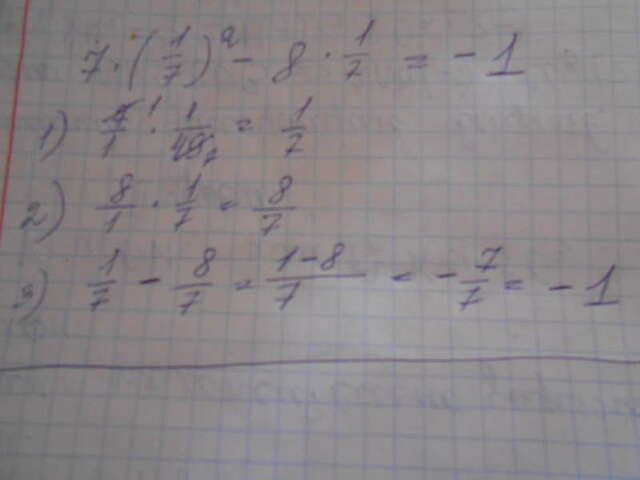 7 · (1/7)² - 8 · 1/7 = - 1
1) 7/1 · 1/49 = 1/7
2) 8/1 · 1/7 = 8/7
3) 1/7 - 8/7 = 1-8/7 = - 7/7 = - 1